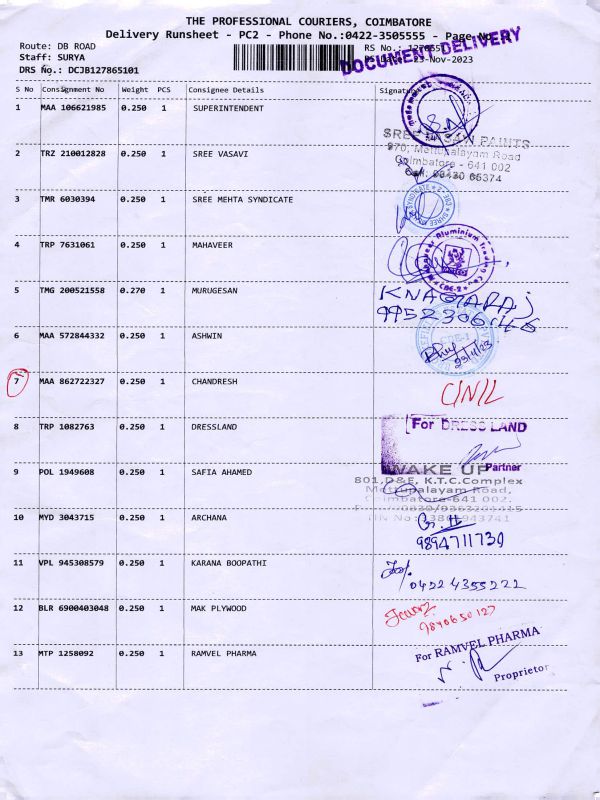 THE PROFESSIONAL COURIERS, COIMBATORE
Delivery Runsheet - PC2 - Phone No.:0422-3505555 - Page No
DOCUMENT DELIVERY
Route: DB ROAD
Staff: SURYA
23-Nov-2023
DRS No.: DCJB127865101
S No Consignment No Weight PCS Consignee Details Signature
1 MAA 106621985 0.250 1 SUPERINTENDENT
PAINTS
970, Mettupalayam Road
Coimbatore - 641 002
2 TRZ 210012828 0.250 1 SREE VASAVI
3 TMR 6030394 0.250 1 SREE MEHTA SYNDICATE
4 TRP 7631061 0.250 1 MAHAVEER
5 TMG 200521558 0.270 1 MURUGESAN
KNAGARAJ
9952306146
6 MAA 572844332 0.250 1 ASHWIN
23/11/23
7 MAA 862722327 0.250 1 CHANDRESH
C/N/L
8 TRP 1082763 0.250 1 DRESSLAND
For DRESS LAND
Partner
9 POL 1949608 0.250 1 SAFIA AHAMED
WAKE UP
801,D&E, K.T.C.Complex
Mettupalayam Road,
Coimbatore-641 002.
10 MYD 3043715 0.250 1 ARCHANA
9894711739
11 VPL 945308579 0.250 1 KARANA BOOPATHI
0422 4355222
12 BLR 6900403048 0.250 1 MAK PLYWOOD
9840650127
13 MTP 1258092 0.250 1 RAMVEL PHARMA
For RAMVEL PHARMA
Proprietor